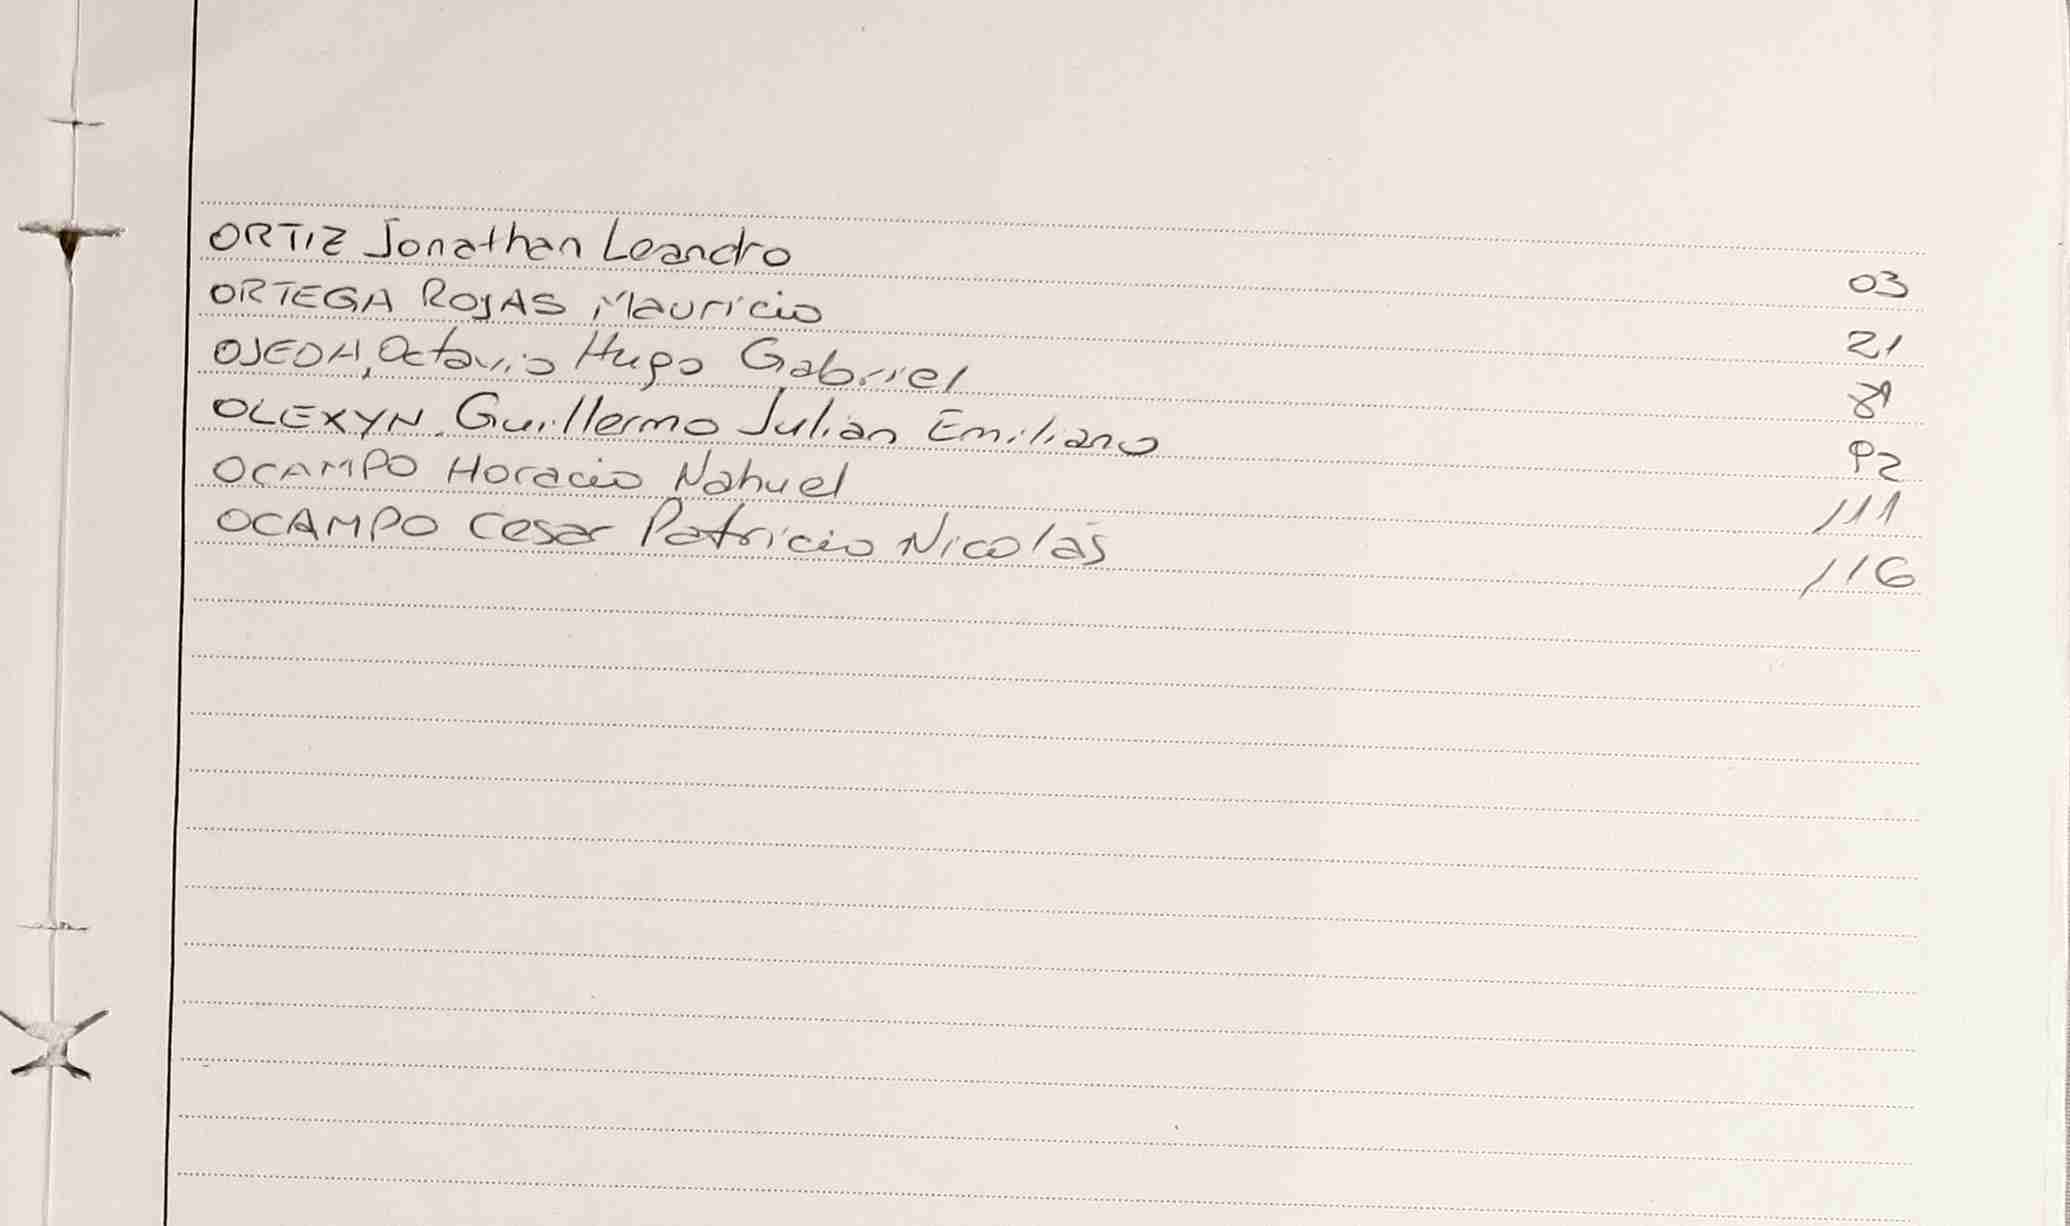 ORTIZ Jonathan Leandro 03
ORTEGA ROJAS Mauricio 21
OJEDA, Octavio Hugo Gabriel
OLEXYN. Guillermo Julian Emiliano 92
OCAMPO Horacio Nahuel 111
OCAMPO Cesar Patricio Nicolás 116